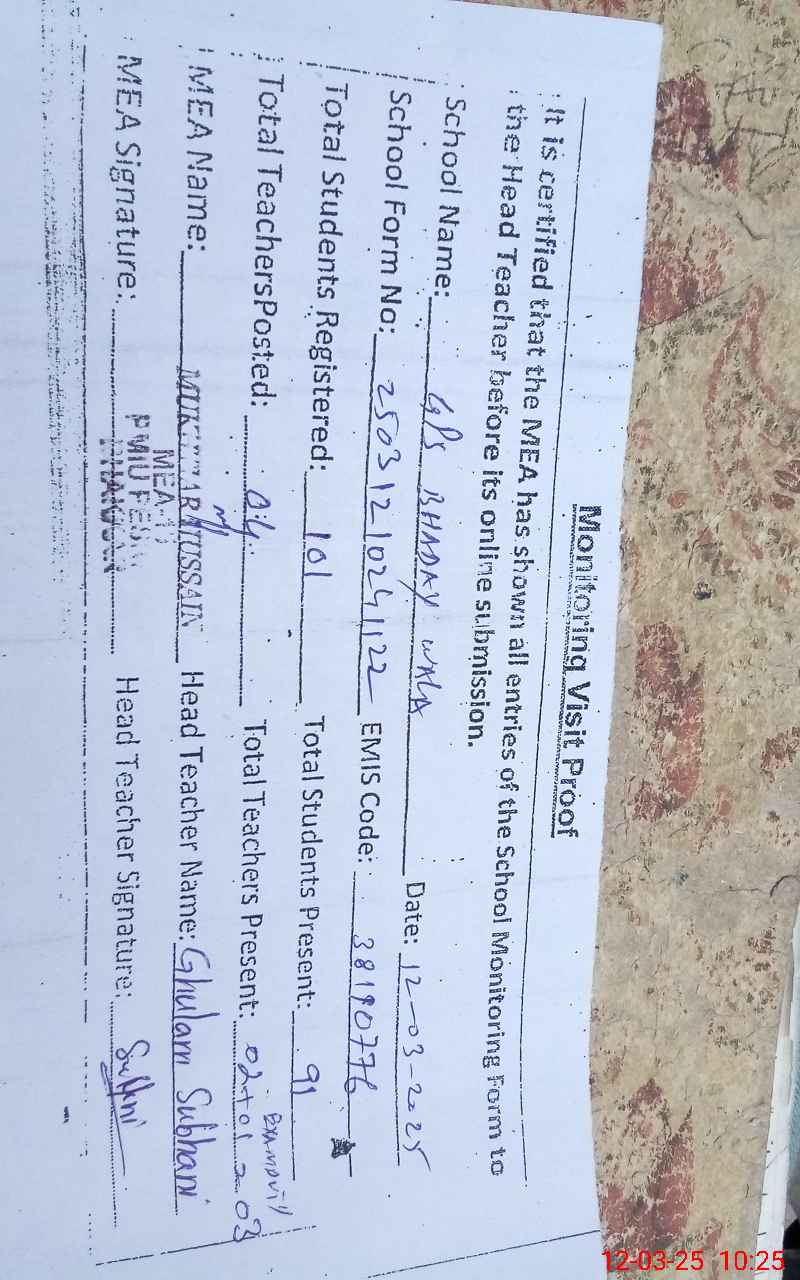 Monitoring Visit Proof
It is certified that the MEA has shown all entries of the School Monitoring Form to
the Head Teacher before its online submission.
School Name: GPS BHADAY WALA Date: 12-03-2025
School Form No: EMIS Code: 38190776
Total Students Registered: 101 Total Students Present: 91
Total TeachersPosted: 04 Total Teachers Present: 02+01=03
MEA Name: MUKHTAR HUSSAIN Head Teacher Name: Ghulam Subhani
MEA
MEA Signature: Head Teacher Signature: Subhani
12-03-25 10:25